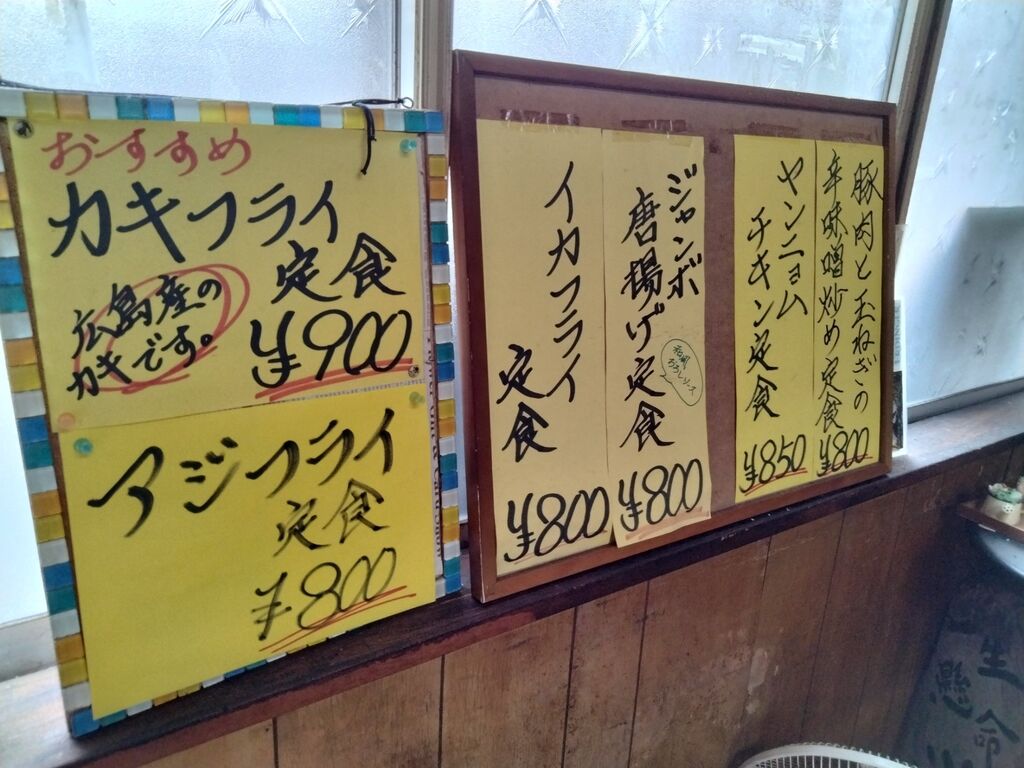 おすすめ
カキフライ
定食
広島産の
カキです。
¥900
アジフライ
定食
¥800
豚肉と玉ねぎの
辛味噌炒め定食
¥800
ヤンニョム
チキン定食
¥850
ジャンボ
唐揚げ定食
¥800
イカフライ
定食
¥800
生
懸
命